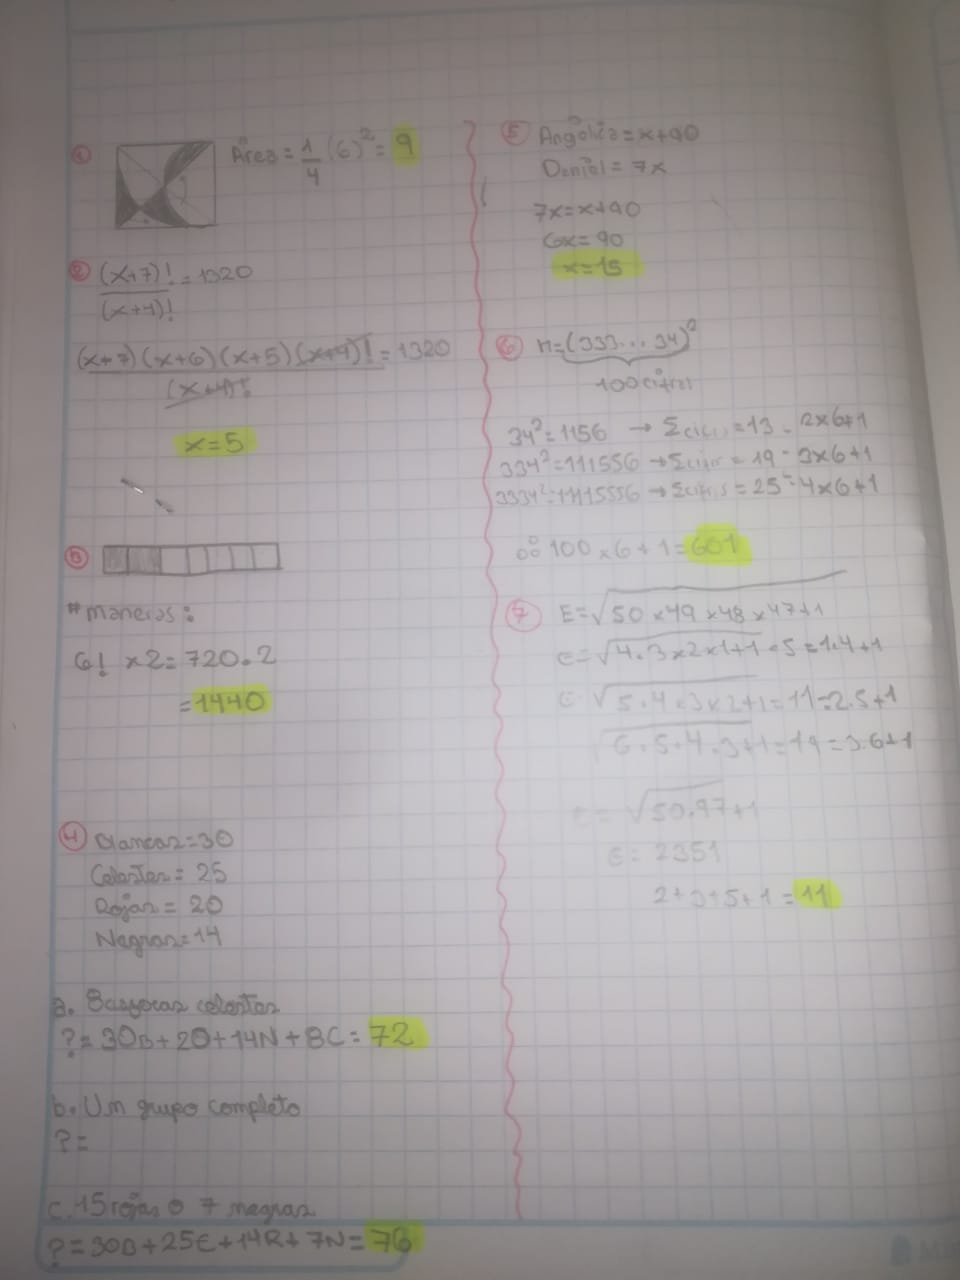 1 Área = 1/4 (6)² = 9
2 (x+7)! / (x+4)! = 1320
(x+7)(x+6)(x+5)(x+4)! / (x+4)! = 1320
x=5
3
# maneras:
6! x2 = 720.2
= 1440
4 Blancas = 30
Celestes = 25
Rojas = 20
Negras = 14
a. 8 celestes
?= 30B + 20 + 14N + 8C = 72
b. Um grupo completo
?=
c. 15 rojas o 7 negras
?= 30B + 25C + 14R + 7N = 76
5 = x+90
Daniel = 7x
7x = x+90
6x = 90
x = 15
6 n = (333...34)²
100 cifras
34² = 1156 → Σcifr = 13 = 2x6+1
334² = 111556 → Σcifr = 19 = 3x6+1
3334² = 11115556 → Σcifrs = 25 = 4x6+1
∴ 100 x 6 + 1 = 601
7 E = √50 x 49 x 48 x 47 + 1
E = √4.3x2x1+1 = 5 = 1.4+1
E √5.4x3x2+1 = 11 = 2.5+1
√6.5.4.3+1 = 19 = 3.6+1
E = √50.47+1
E = 2351
2+3+5+1 = 11